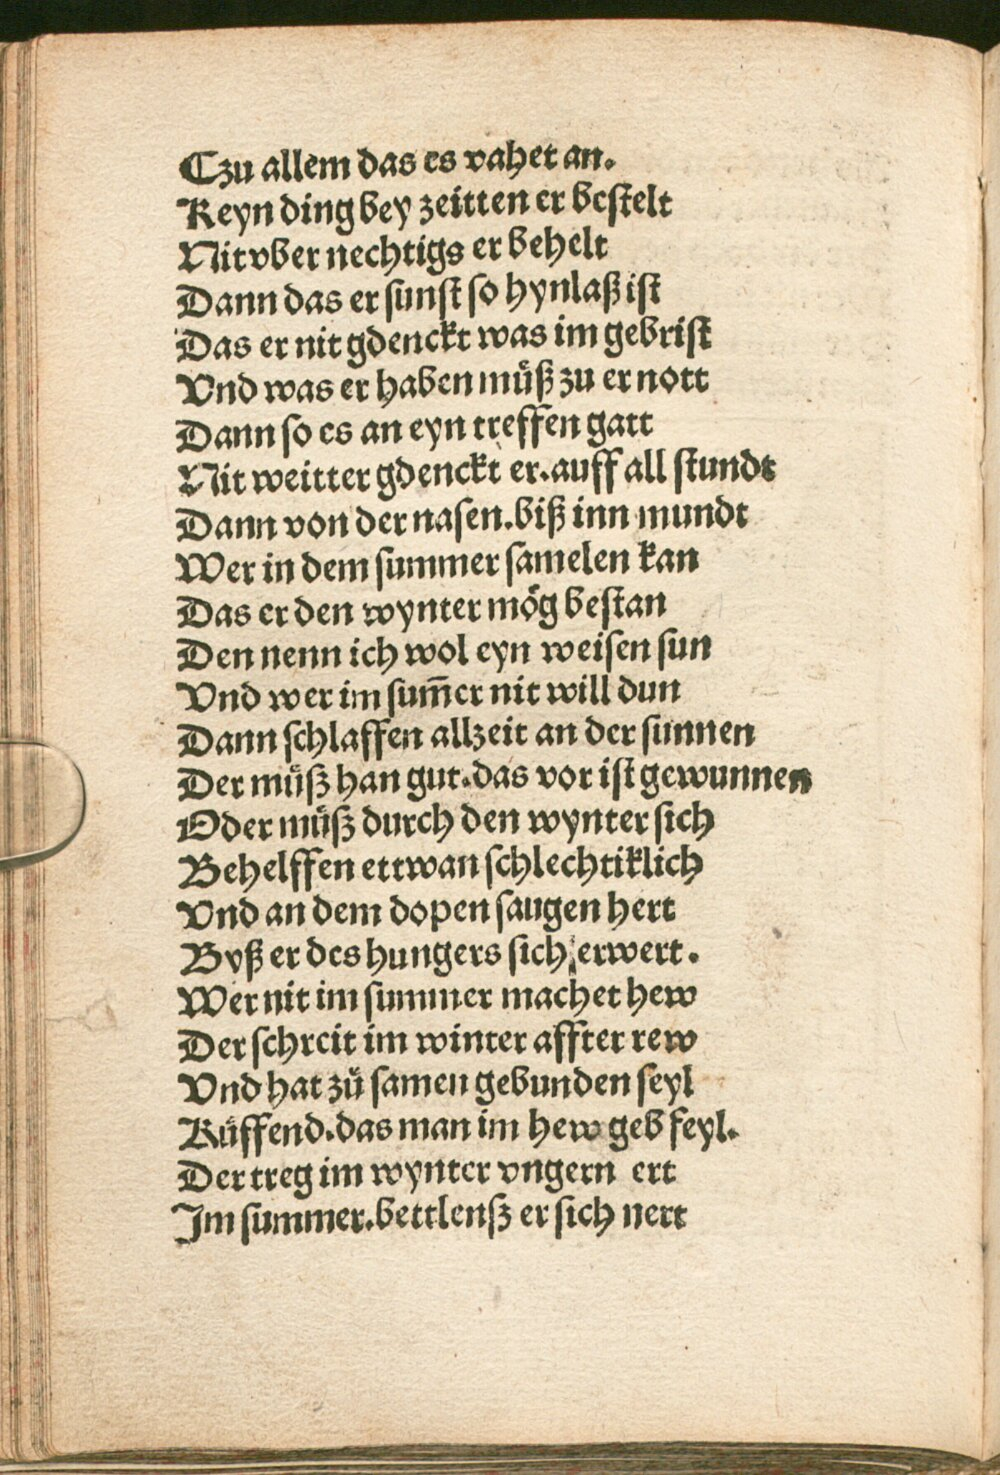 Czu allem das es vahet an.
Keyn ding bey zeitten er bestelt
Nit vber nechtigs er behelt
Dann das er sunst so hynlaß ist
Das er nit gdenckt was im gebrist
Vnd was er haben muͤß zu er nott
Dann so es an eyn treffen gatt
Nit weitter gdenckt er. auff all stundt
Dann von der nasen. biß inn mundt
Wer in dem summer samelen kan
Das er den wynter moͤg bestan
Den nenn ich wol eyn weisen sun
Vnd wer im sum̄er nit will dun
Dann schlaffen allzeit an der sunnen
Der muͤß han gut. das vor ist gewunnen
Oder muͤß durch den wynter sich
Behelffen ettwan schlechtiklich
Vnd an dem dopen saugen hert
Byß er des hungers sich erwert.
Wer nit im summer machet hew
Der schreit im winter affter rew
Vnd hat zuͤ samen gebunden seyl
Ruͤffend. das man im hew geb feyl.
Der treg im wynter vngern ert
Im summer. bettlenß er sich nert